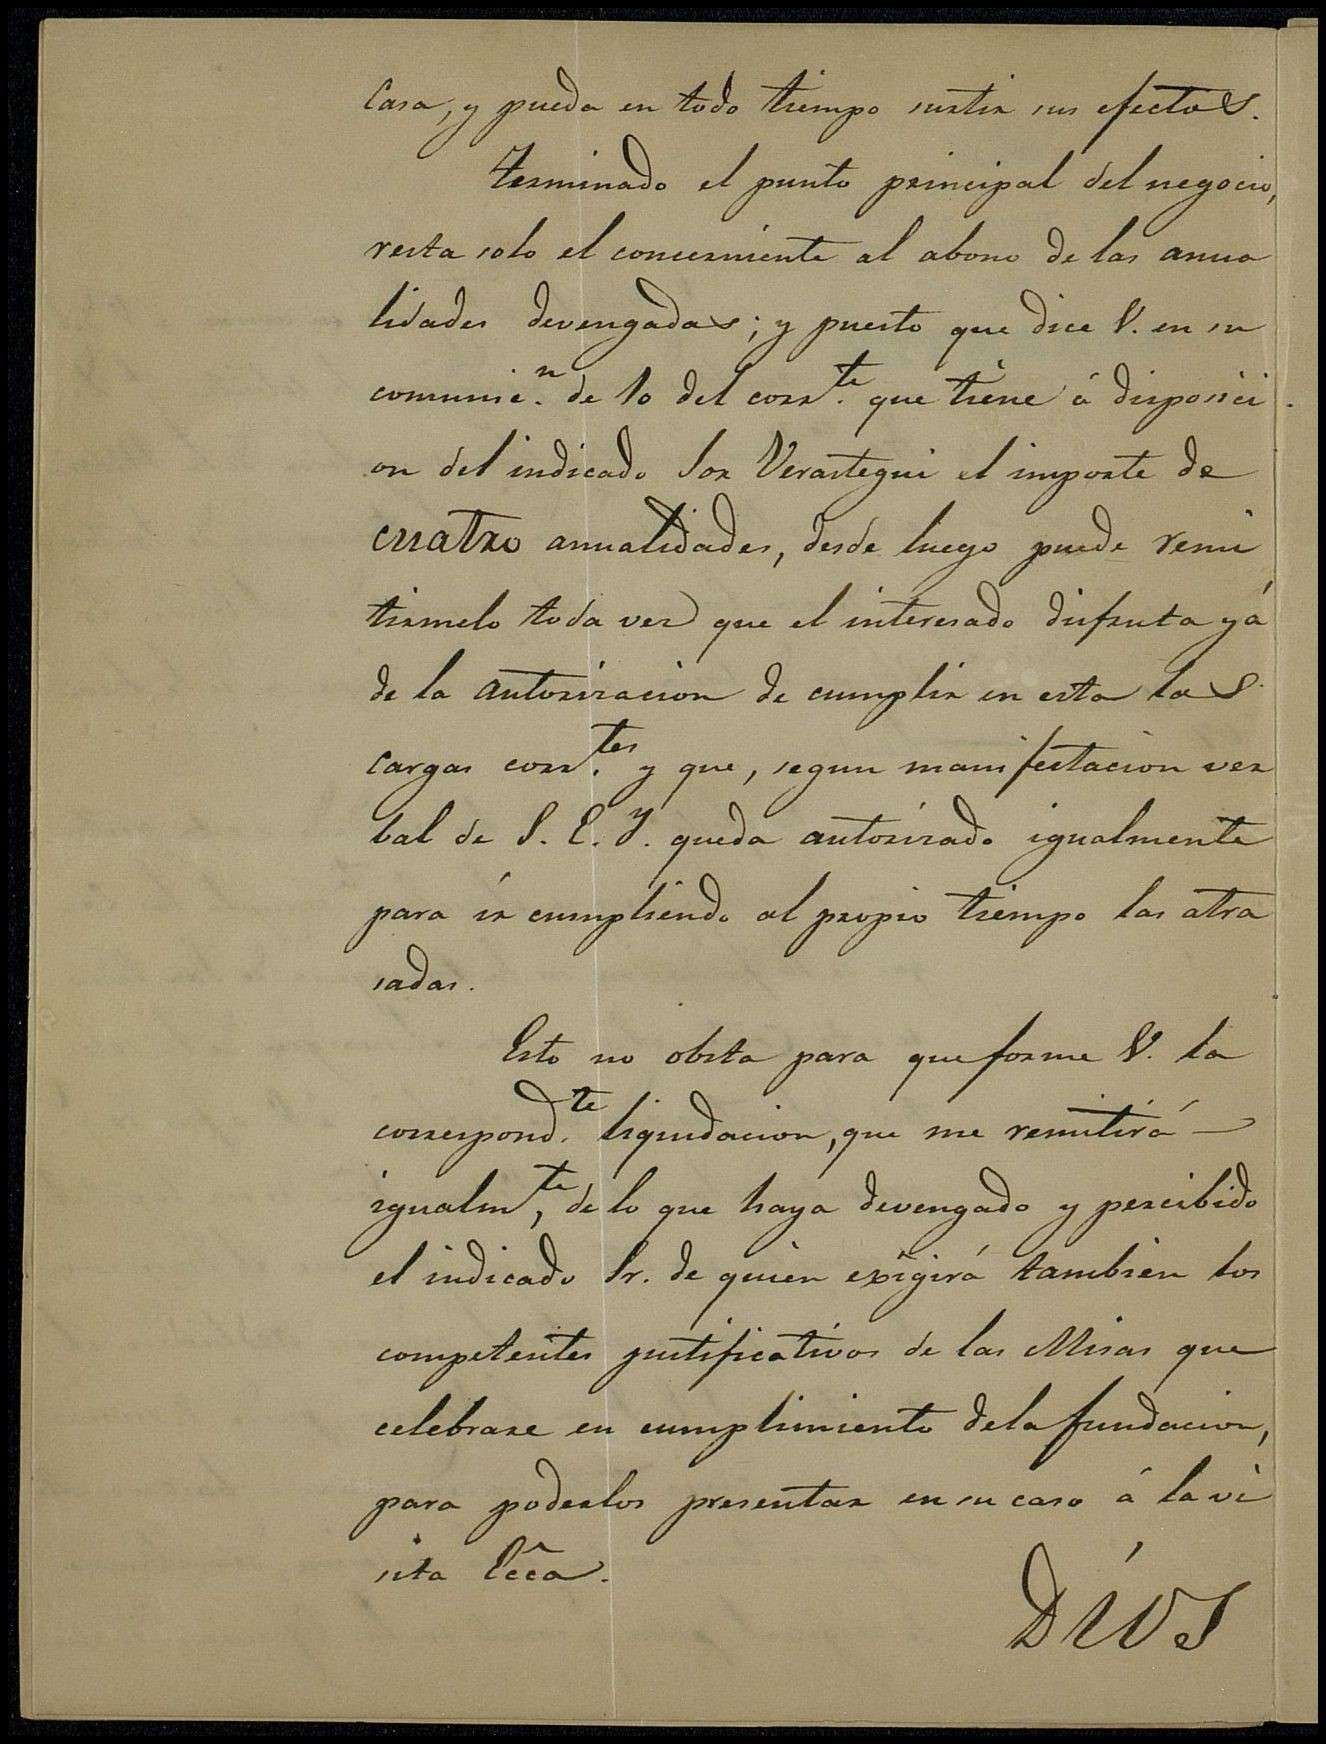 Casa, y pueda en todo tiempo surtir sus efectos.
Terminado el punto principal del negocio,
resta solo el concerniente al abono de las anua
lidades devengadas; y puesto que dice V. en su
comunic.n de 10 del corr.te que tiene á disposici
on del indicado Sor Verastegui el importe de
cuatro anualidades, desde luego puede remi
tirmelo toda vez que el interesado disfruta yá
de la autorizacion de cumplir en esta las
cargas corr.tes y que, segun manifestacion ver
bal de S. E. Y. queda autorizado igualmente
para ír cumpliendo al propio tiempo las atra
sadas.
Esto no obsta para que forme V. la
correspond.te liquidacion, que me remitirá
igualm.te, de lo que haya devengado y percibido
el indicado Sr. de quien exigirá tambien los
competentes justificativos de las Misas que
celebrare en cumplimiento de la fundacion,
para poderlos presentar en su caso á la vi
sita Ecca.
Dios